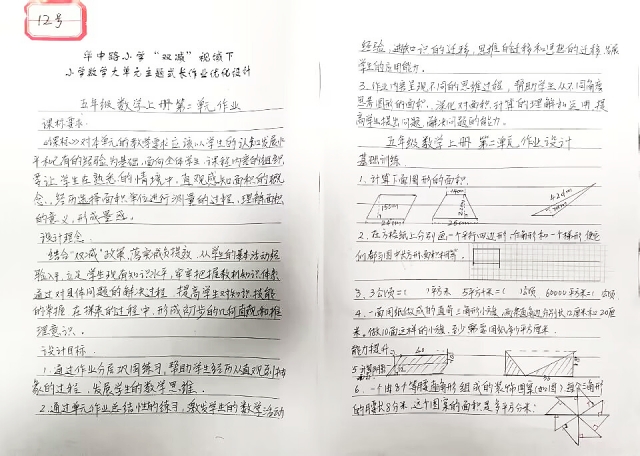 12号
华中路小学“双减”视域下
小学数学大单元主题式长作业优化设计
五年级数学上册第二单元作业
课标要求:
《课标》对本单元的教学要求应该以学生的认知发展水
平和已有的经验为基础,面向全体学生,课程内容的组织,
要让学生在熟悉的情境中,直观感知面积的概
念,经历选择面积单位进行测量的过程,理解面积
的意义,形成量感。
设计理念:
结合“双减”政策,落实减负提效,从学生的基本活动经
验入手,立足学生现有知识水平,牢牢把握教材知识体系
通过对具体问题的解决过程,提高学生对知识技能
的掌握,在探索的过程中,形成初步的几何直观和推
理意识。
设计目标:
1.通过作业分层巩固练习,帮助学生经历从直观到抽
象的过程,发展学生的数学思维.
2.通过单元作业总结性的练习,激发学生的数学活动
经验,进知识的迁移,思维的迁移和思想的迁移,发展
学生的应用能力。
3.作业内容呈现不同的思维过程,帮助学生从不同角度
思考图形的面积,深化对面积计算的理解和运用,提
高学生提出问题,解决问题的能力。
五年级数学上册 第二单元作业设计
基础训练
1、计算下面图形的面积.
15cm
14cm
26cm
4.2dm
2、在方格纸上分别画一个平行四边形,三角形和一个梯形,使它
们都与图中长方形面积相等。
3、3公顷=( )平方米 5平方米=( )公顷 60000平方米=( )公顷
4、一面用纸做成的直角三角形小旗,两条直角边分别长12厘米和20厘
米。做10面这样的小旗,至少需要用纸多少平方厘米.
能力提升
5、计算阴影
6、一个由8个等腰直角形组成的装饰图案(如图)每个三角形
的腰长8分米,这个图案的面积是多少平方米?